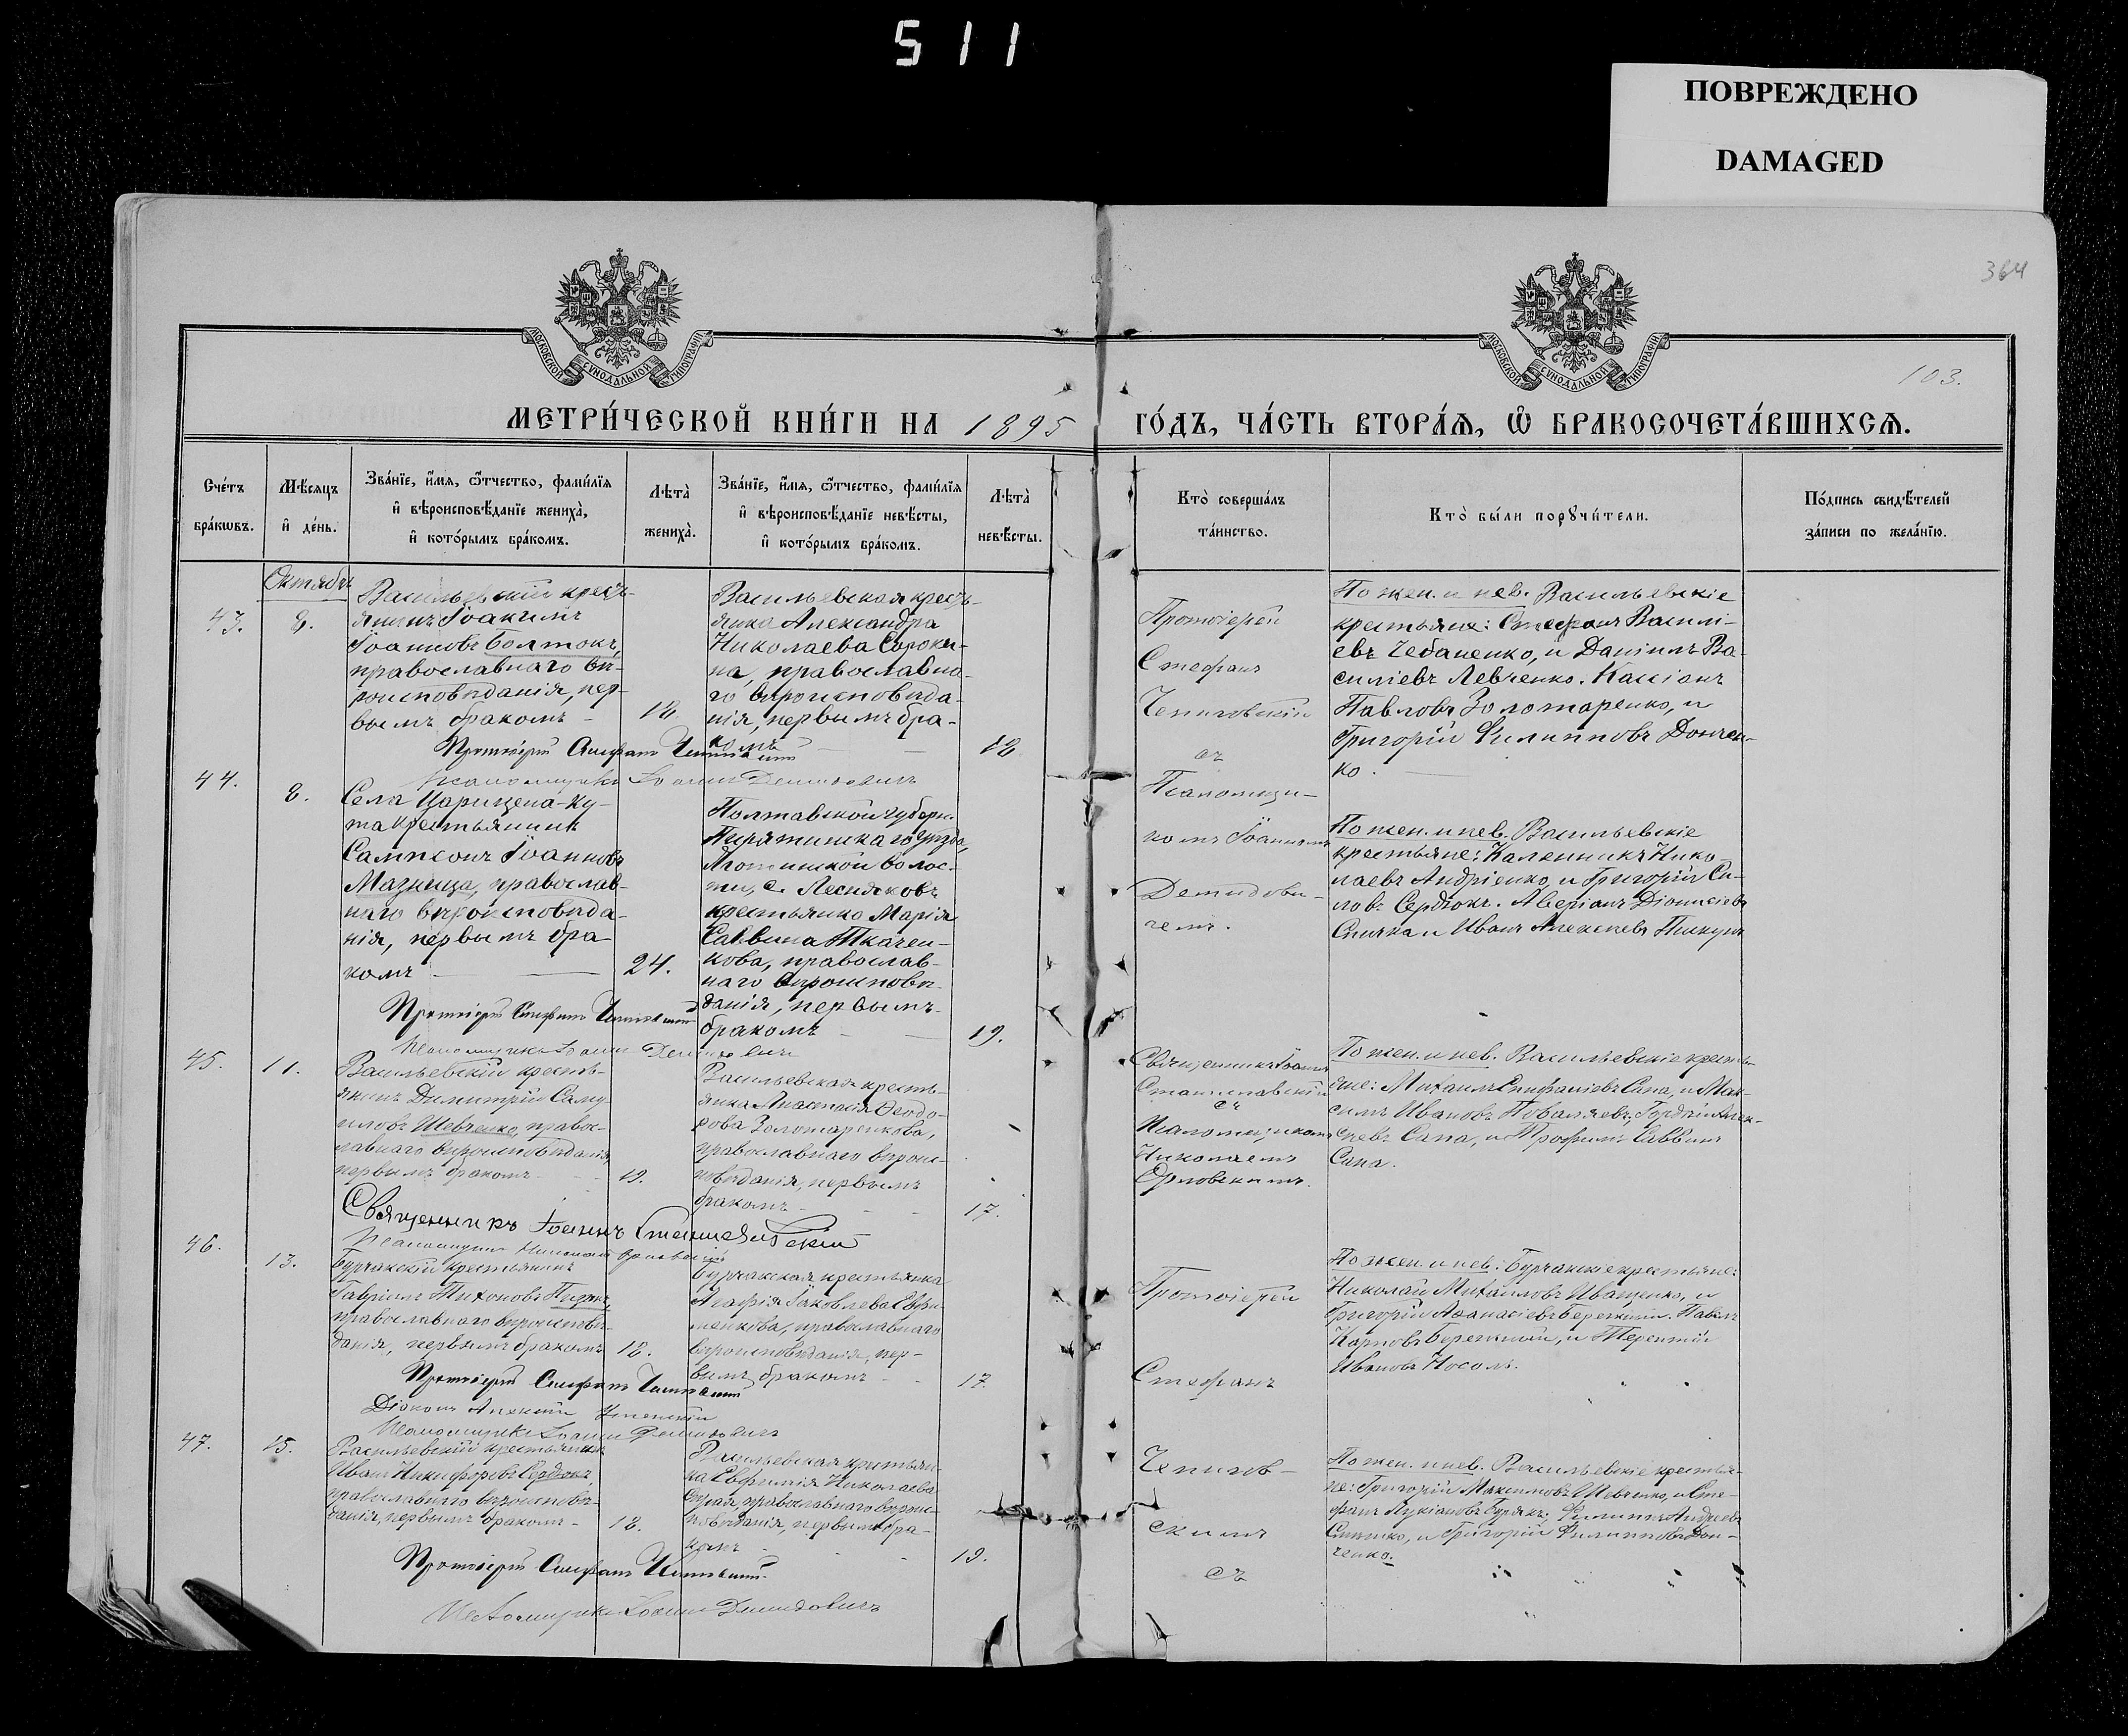 511
ПОВРЕЖДЕНО
DAMAGED
364
103.
МОСКОВСКОЙ СѴНОДАЛЬНОЙ ТИПОГРАФІИ
МОСКОВСКОЙ СѴНОДАЛЬНОЙ ТИПОГРАФІИ
МЕТРИ́ЧЕСКОЙ КНИ́ГИ НА 1895 ГО́ДЪ, ЧА́СТЬ ВТОРА́Ѧ, Ѽ БРАКОСОЧЕТА́ВШИХСѦ.
Сче́тъ
бра́кѡвъ.
Мѣ́сяцъ
и҆ де́нь.
Зва́нїе, и҆́мя, ѻ҆́тчество, фами́лїя
и҆ вѣроисповѣ́данїе жениха̀,
и҆ кото́рымъ бра́комъ.
Лѣта̀
жениха̀.
Зва́нїе, и҆́мя, ѻ҆́тчество, фами́лїя
и҆ вѣроисповѣ́данїе невѣ́сты,
и҆ кото́рымъ бра́комъ.
Лѣта̀
невѣ́сты.
Кто̀ соверша́лъ
та́инство.
Кто̀ бы́ли порꙋчи́тели.
По́дпись свидѣ́телей
за́писи по жела́нїю.
Октябрь
43.
8.
Васильевскій кресть-
янинъ Іоакимъ
Іоанновъ Болтокъ,
православнаго вѣ-
роисповѣданія, пер-
вымъ бракомъ -
18.
Васильевская кресть-
янка Александра
Николаева Сороки-
на, православна-
го вѣроисповѣда-
нія, первымъ бра-
комъ
18
Протоіерей
Стефанъ
съ
Псаломщи-
комъ Іоанномъ
Демидови-
чемъ.
По жен. и нев. Васильевскіе
крестьяне: Стефанъ Василі-
евъ Чебаненко, и Даніилъ Ва-
силіевъ Левченко. Кассіанъ
Павловъ Золотаренко, и
Григорій Филипповъ Дончен-
ко.
Псаломщикъ Іоаннъ Демидовичъ
44.
8.
Села Царицена-Ку-
та крестьянинъ
Сампсонъ Іоанновъ
Мазница, православ-
наго вѣроисповѣда-
нія, первымъ бра-
комъ
24.
Полтавской губерн.
Пирятинскаго уѣзда,
волос-
ти, с. Лесняковъ
крестьянка Марія
Саввина Ткачен-
кова, православ-
наго вѣроисповѣ-
данія, первымъ
бракомъ
19.
По жен. и нев. Васильевскіе
крестьяне: Калинникъ Нико-
лаевъ Андріенко, и Григорій Си-
ловъ Сердюкъ. Аверіанъ Діонисіевъ
Спичка и Иванъ Алексѣевъ Пикуль
Псаломщикъ Іоаннъ Демидовичъ
45.
11.
Васильевскій кресть-
янинъ Димитрій Саму-
иловъ Шевченко, правос-
лавнаго вѣроисповѣданія,
первымъ бракомъ
19.
Васильевская кресть-
янка Анастасія Ѳеодо-
рова Золотаренкова,
православнаго вѣроис-
повѣданія, первымъ
бракомъ
17.
Священникъ Іоаннъ
Станиславскій
съ
Псаломщикомъ
Николаемъ
Орловскимъ.
По жен. и нев. Васильевскіе кресть-
яне: Михаилъ Епифаніевъ Сапа, и Мак-
симъ Ивановъ Поваляевъ; Гордій Алек-
сѣевъ Сапа, и Трофимъ Саввинъ
Сапа.
Священникъ Іоаннъ Станиславскій
Псаломщикъ Николай Орловскій
46.
13.
Бурчакскій крестьянинъ
Гавріилъ Тихоновъ
православнаго вѣроисповѣ-
данія, первымъ бракомъ
18.
Бурчакская крестьянка
Агафія Іаковлева Ефи-
менкова, православнаго
вѣроисповѣданія, пер-
вымъ бракомъ
17.
Протоіерей
Стефанъ
По жен. и нев.: Бурчакскіе крестьяне:
Николай Михайловъ Иващенко, и
Григорій Аѳанасіевъ Бережный. Павелъ
Карповъ Бережный, и Терентій
Ивановъ Носоль.
Діаконъ Алексій Успенскій
Псаломщикъ Іоаннъ Демидовичъ
47.
15.
Васильевскій крестьянинъ
Иванъ Никифоровъ Сердюкъ,
православнаго вѣроисповѣ-
данія, первымъ бракомъ -
18.
Васильевская крестьян-
ка Евфимія Николаева
православнаго вѣроис-
повѣданія, первымъ бра-
комъ
19.
скимъ
съ
По жен. и нев. Васильевскіе крестья-
не: Григорій Максимовъ Шевченко, и Сте-
фанъ Лукіановъ Бурякъ; Филиппъ Андреевъ
и Григорій Филипповъ Дон-
ченко.
Псаломщикъ Іоаннъ Демидовичъ